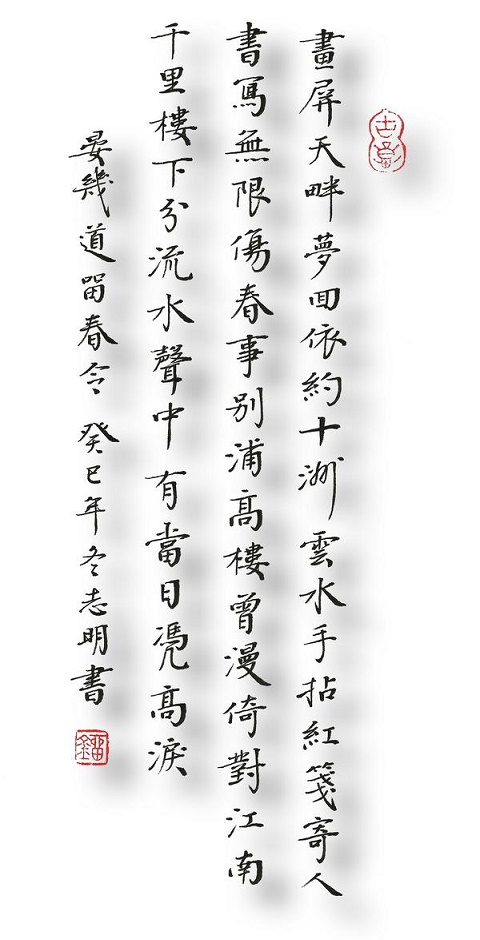 畫屏天畔夢回依約十洲雲水手拈紅箋寄人
書寫無限傷春事別浦高樓曾漫倚對江南
千里樓下分流水聲中有當日凴高淚
晏幾道留春令 癸巳年冬志明書